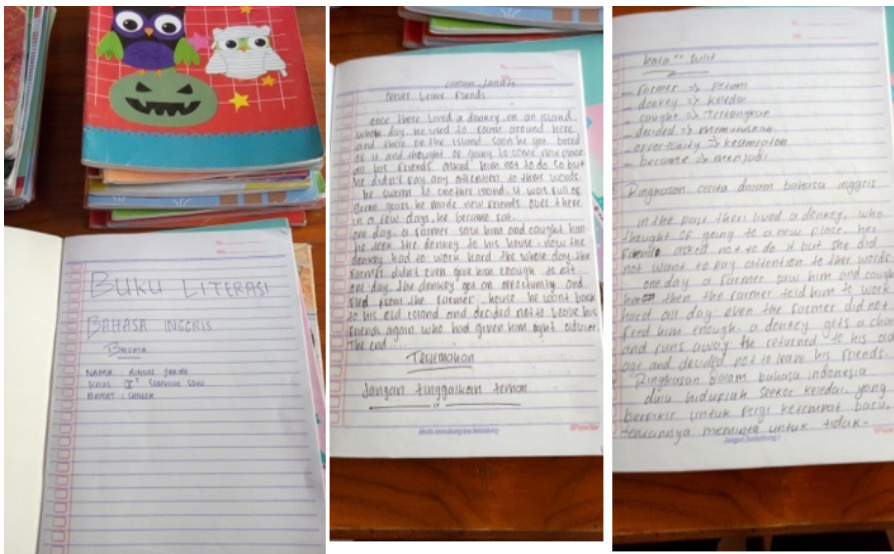 BUKU LITERASI
BAHASA INGGRIS
NAMA :
KELAS :
Never Leave Friends
once there lived a donkey on an island
whole day. he used to roam around here
and there on the island soon he got bored
of it and thought of going to some new place
all his friends asked him not to do so but
he didn't pay any attention to their words.
he swam to another island. it was full of
green grass. he made new friends over there
in a few days, he became fat.
one day, a farmer saw him and caught him
he took the donkey to his house. now the
donkey had to work hard the whole day the
farmer didn't even give him enough to eat
one day, the donkey got an
fled from the farmer house he went back
to his old island and decided not to leave his
friends again who had given him right advice.
The end...
Terjemahan
Jangan tinggalkan teman
kata" sulit
- Farmer => Petani
- donkey => keledai
- caught => Tertangkap
- decided => memutuskan
- => kesempatan
- became => menjadi
Ringkasan cerita dalam bahasa inggris
in the past there lived a donkey, who
thought of going to a new place. her
asked not to do it but she did
not want to pay attention to their words
one day a farmer saw him and
then the farmer told him to work
hard all day. even the farmer did not
feed him enough. a donkey gets a
and runs away he returned to his
and decided not to leave his friends.
Ringkasan dalam bahasa indonesia
dulu hiduplah seekor keledai, yang
berpikir untuk pergi ketempat baru,
temannya meminta untuk tidak-